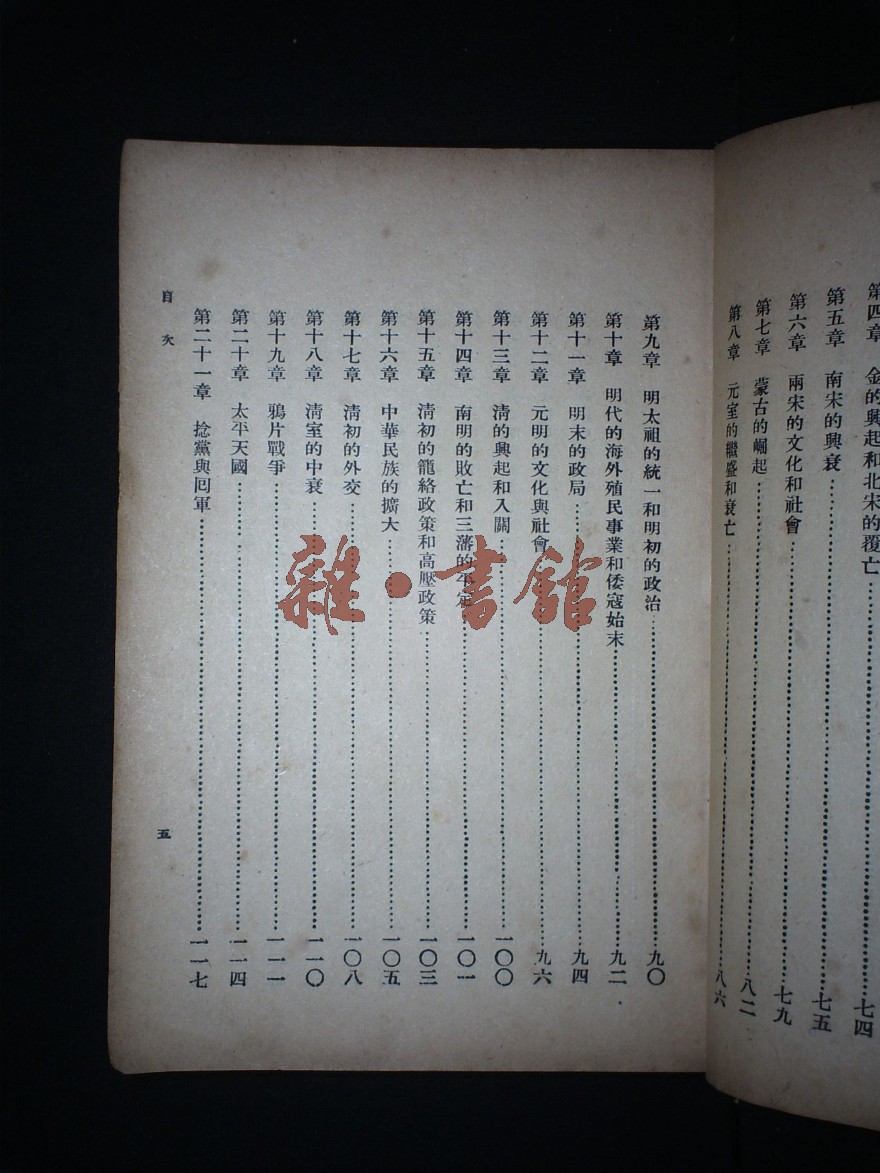 第四章　金的興起和北宋的覆亡……七四
第五章　南宋的興衰……七五
第六章　兩宋的文化和社會……七九
第七章　蒙古的崛起……八二
第八章　元室的繼盛和衰亡……八六
第九章　明太祖的統一和明初的政治……九〇
第十章　明代的海外殖民事業和倭寇始末……九二
第十一章　明末的政局……九四
第十二章　元明的文化與社會……九六
第十三章　清的興起和入關……一〇〇
第十四章　南明的敗亡和三藩的平定……一〇一
第十五章　清初的籠絡政策和高壓政策……一〇三
第十六章　中華民族的擴大……一〇五
第十七章　清初的外交……一〇八
第十八章　清室的中衰……一一〇
第十九章　鴉片戰爭……一一一
第二十章　太平天國……一一四
第二十一章　捻黨與回軍……一一七
目次
五
雜·書館